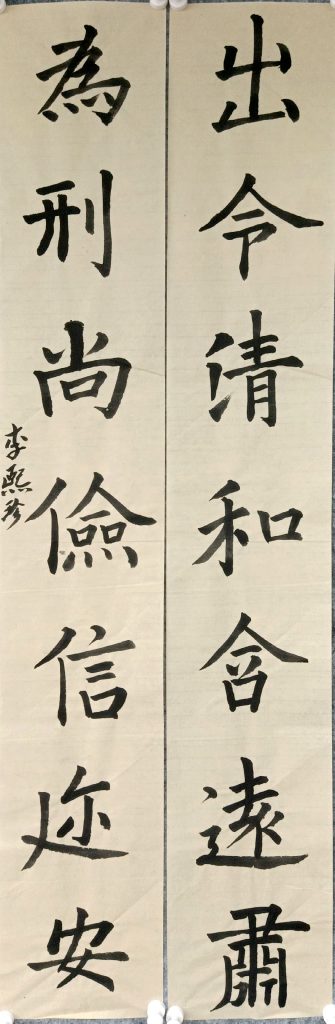 出令清和含遠肅
為刑尚儉信迩安
李熙珍